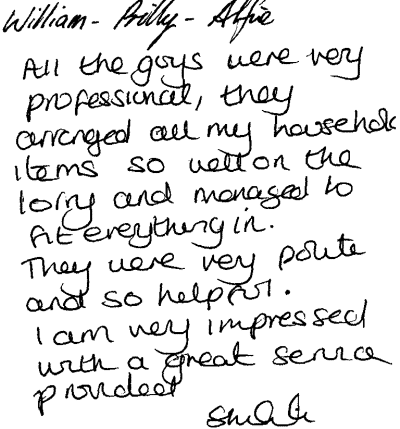 William - Billy - Alfie
All the guys were very
professional, they
arranged all my household
items so well on the
lorry and managed to
fit everything in.
They were very polite
and so helpful.
I am very impressed
with a great service
provided